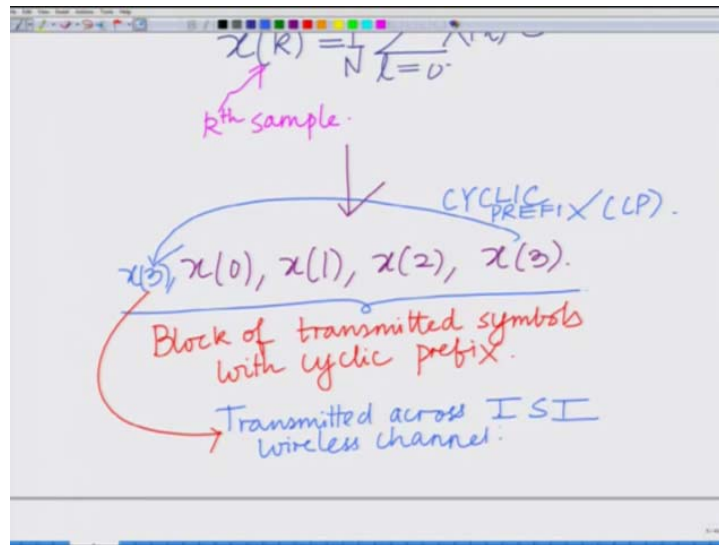 x(k) = 1/N Σ l=0
kth sample.
CYCLIC
PREFIX (CP).
x(3), x(0), x(1), x(2), x(3).
Block of transmitted symbols
with cyclic prefix.
Transmitted across ISI
wireless channel.